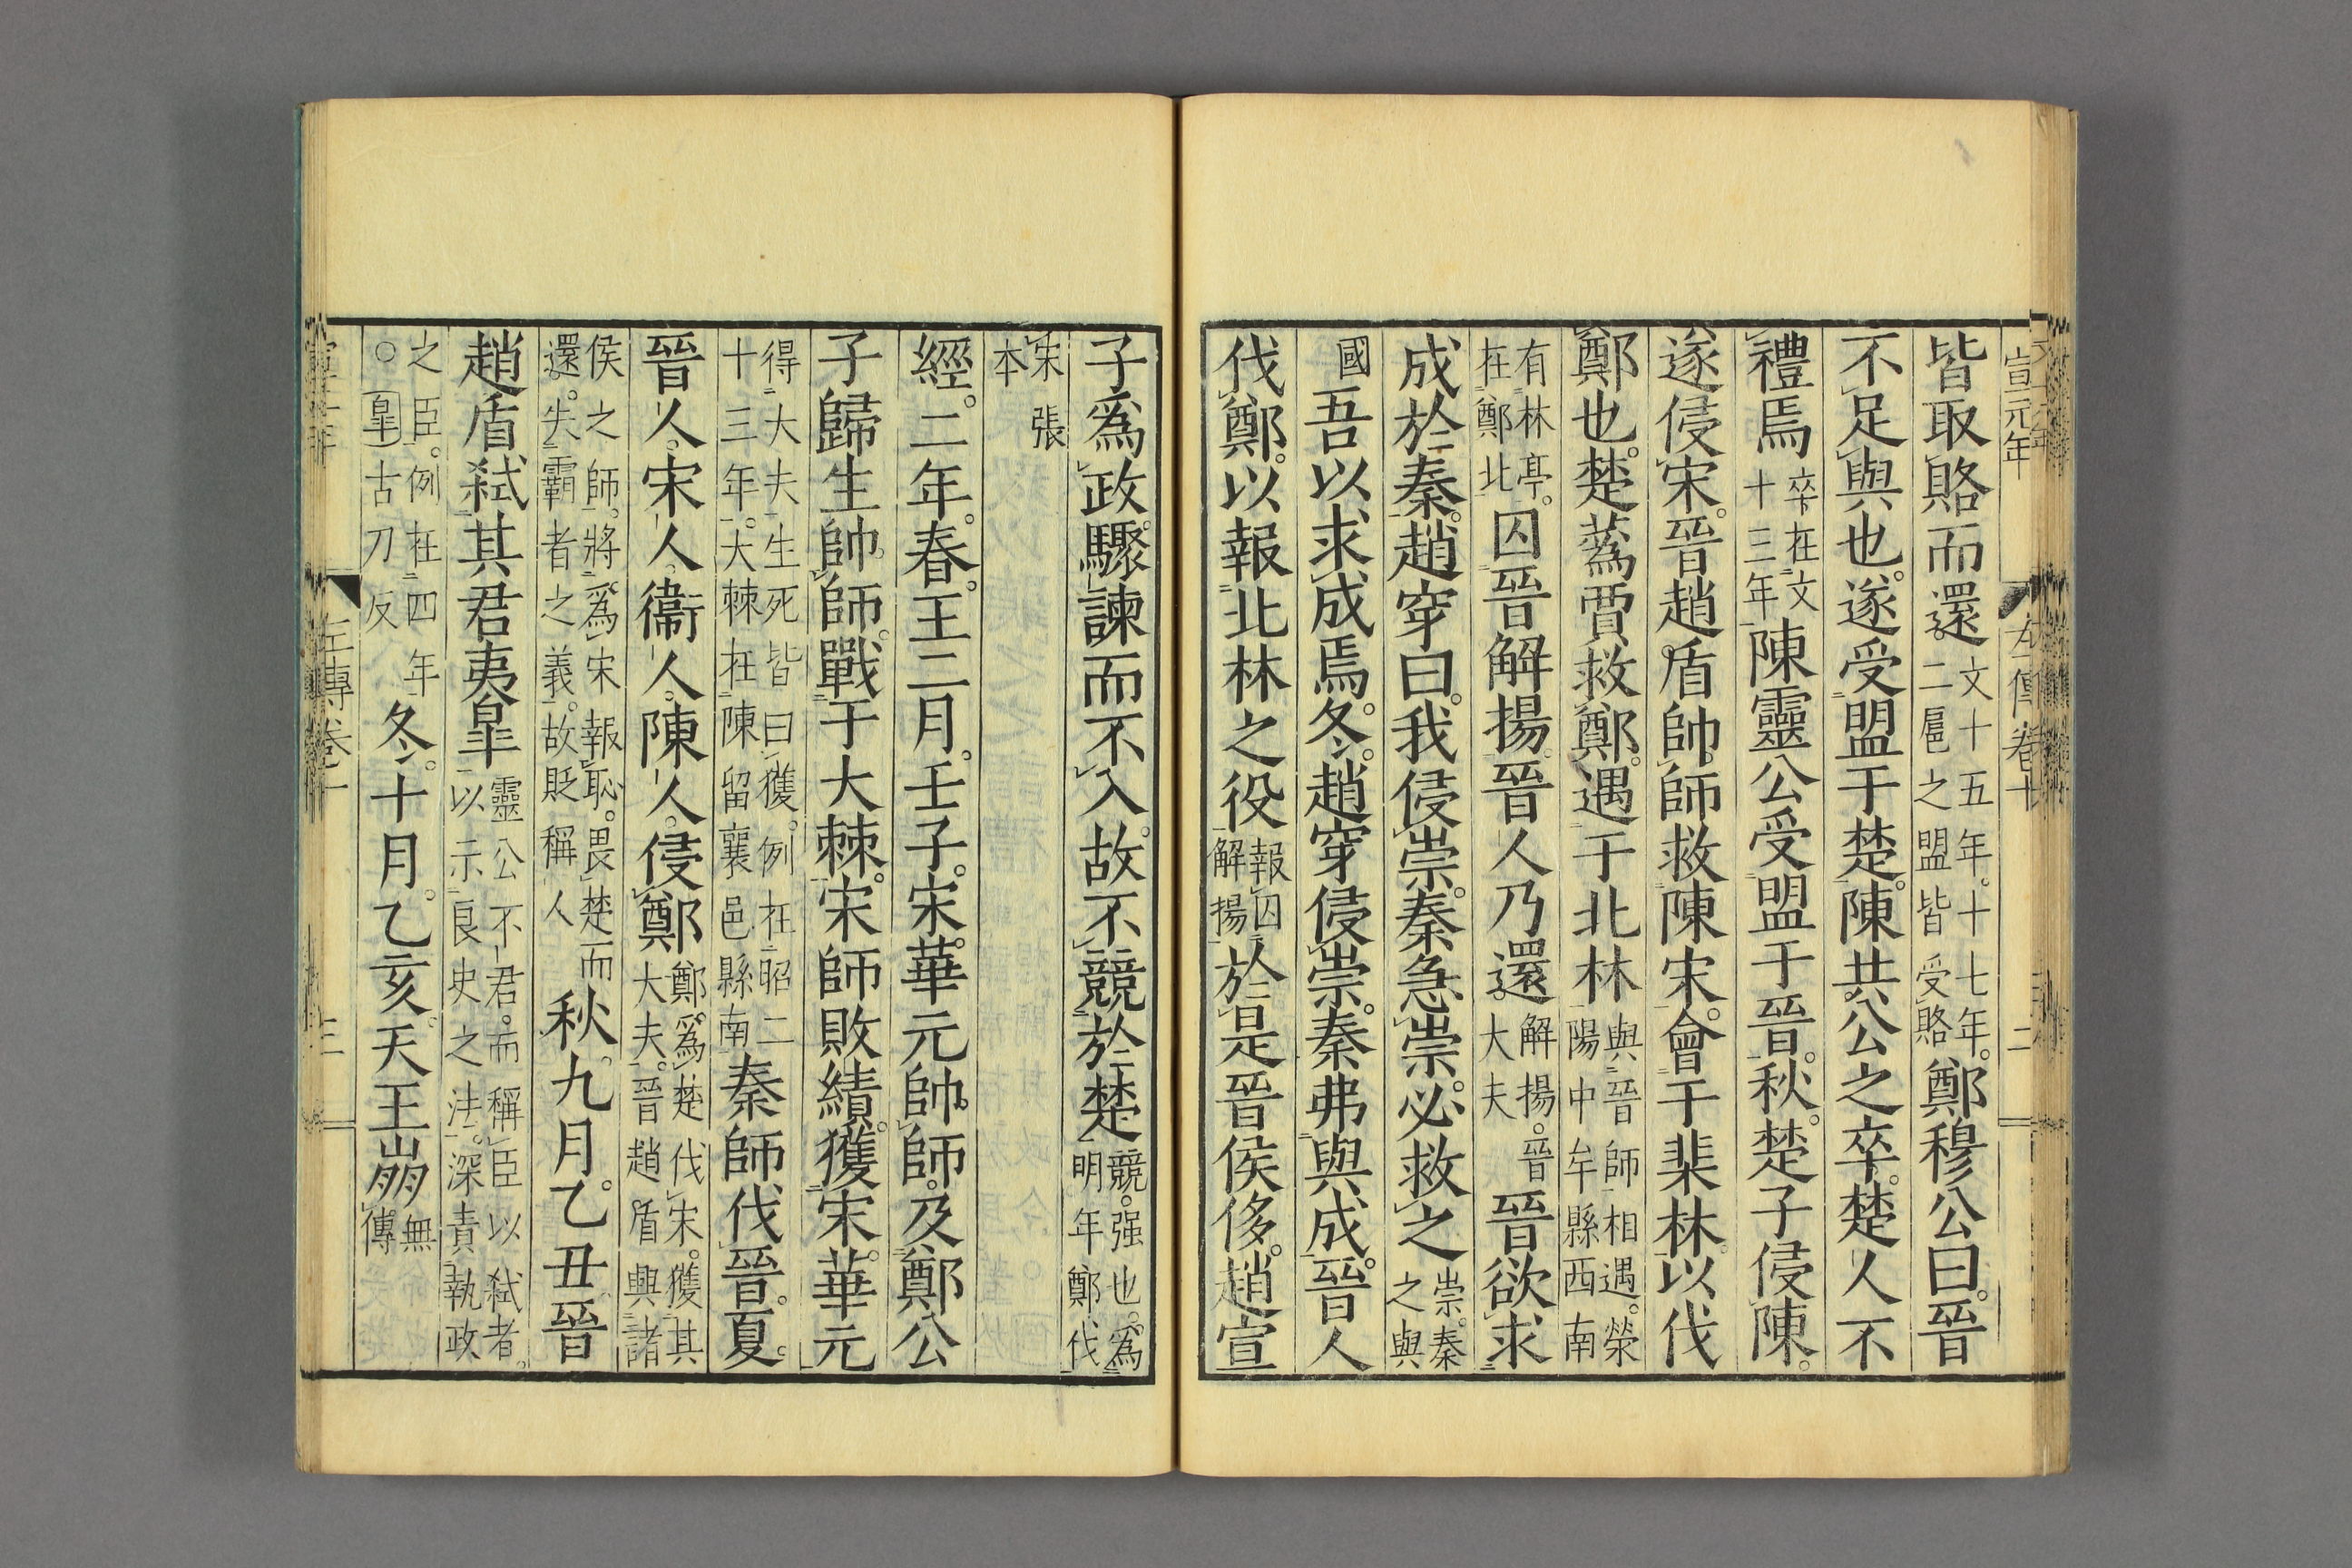 宣元年 左傳卷十 二
皆取賂而還。文十五年。十七年。二扈之盟皆受賂鄭穆公曰。晉
不足與也。遂受盟于楚。陳共公之卒。楚人不
禮焉卒在文十三年陳靈公受盟于晉。秋。楚子侵陳。
遂侵宋。晉趙盾帥師救陳宋。會于棐林。以伐
鄭也。楚蒍賈救鄭。遇于北林與晉師相遇。滎陽中牟縣西南
有林亭。在鄭北囚晉解揚。晉人乃還。解揚。晉大夫晉欲求
成於秦。趙穿曰。我侵崇。秦急崇。必救之崇。秦之與
國吾以求成焉。冬。趙穿侵崇。秦弗與成。晉人
伐鄭。以報北林之役報囚解揚於是晉侯侈。趙宣
子爲政。驟諫而不入。故不競於楚競。强也。爲明年鄭伐
宋張本
經。二年。春。王二月。壬子。宋。華元帥師。及鄭公
子歸生帥師。戰于大棘。宋師敗績。獲宋。華元
得大夫生死皆曰獲。例在昭二十三年。大棘在陳留襄邑縣南秦師伐晉。夏。
晉人。宋人。衞人。陳人。侵鄭鄭爲楚伐宋。獲其大夫。晉趙盾興諸
侯之師。將爲宋報恥。畏楚而還。失霸者之義。故貶稱人秋。九月。乙丑晉
趙盾弒其君夷皐靈公不君。而稱臣以弒者。以示良史之法。深責執政
之臣。例在四年○皐古刀反冬。十月。乙亥。天王崩無傳
左傳卷十